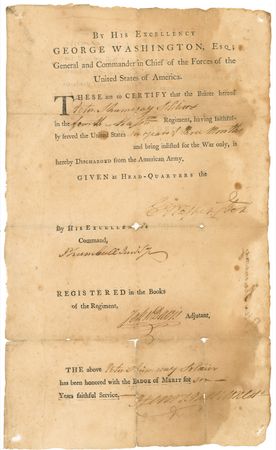 By His Excellency
GEORGE WASHINGTON, Esq;
General and Commander in Chief of the Forces of the
United States of America.
THESE are to CERTIFY that the Bearer hereof
Peter Shumway Soldier
in the Fourth Regiment, having faithful-
ly served the United States
and being inlisted for the War only, is
hereby Discharged from the American Army.
Given at Head-Quarters the
By His Excellency's
Command,
J Trumbull Jun
Registered in the Books
of the Regiment,
Adjutant,
THE above Peter Shumway Soldier
has been honored with the Badge of Merit for
Years faithful Service.